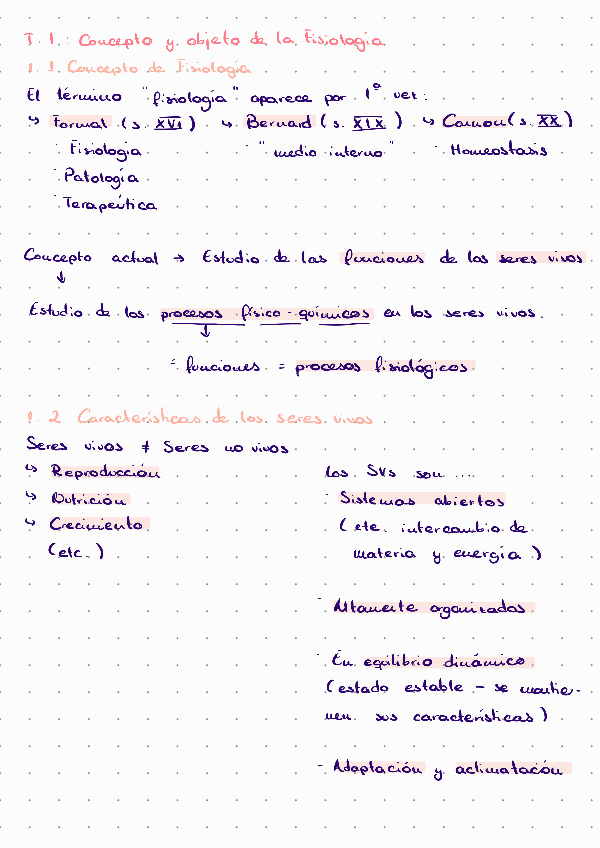 T. 1.: Concepto y objeto de la Fisiología
1. 1. Concepto de Fisiología
El término "fisiología" aparece por 1ª vez:
↳ Formal (s. XVI) ↳ Bernard (s. XIX) ↳ Cannon (s. XX)
· Fisiología · "medio interno" · Homeostasis
· Patología
· Terapeútica
Concepto actual → Estudio de las funciones de los seres vivos
↓
Estudio de los procesos físico-químicos en los seres vivos.
↓
= funciones = procesos fisiológicos
1. 2 Características de los seres vivos
Seres vivos ≠ Seres no vivos
↳ Reproducción
↳ Nutrición
↳ Crecimiento
(etc.)
Los SVs son ...
· Sistemas abiertos
(ete. intercambio de
materia y energía)
· Altamente organizados
· En equilibrio dinámico
(estado estable - se mantie-
nen sus características)
- Adaptación y aclimatación